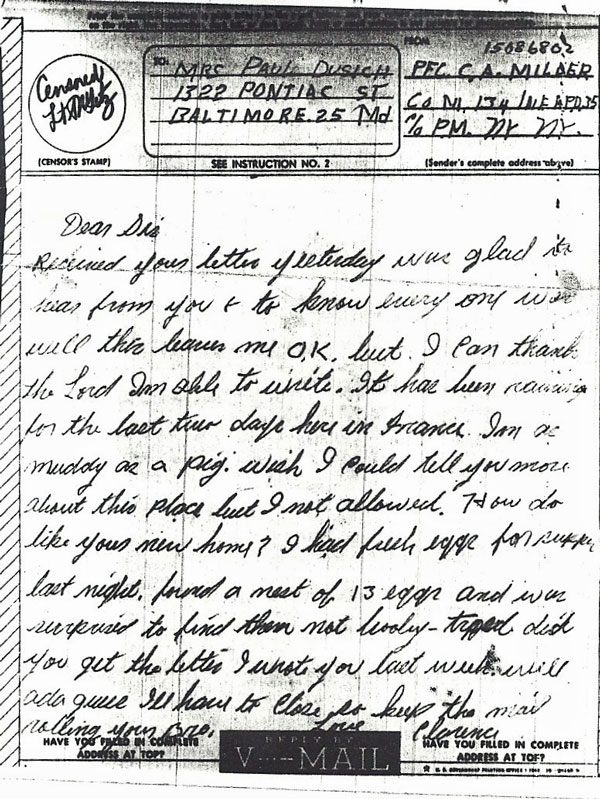 Censored
(CENSOR'S STAMP)
TO:
MRS PAUL DUSICH
1322 PONTIAC ST
BALTIMORE 25 Md
SEE INSTRUCTION NO. 2
FROM
15086802
PFC. C. A. MILDER
Co M, 134 INF APD 35
% PM. NY NY.
(Sender's complete address above)
Dear Sis
Received your letter yesterday was glad to
hear from you & to know every one was
well this leaves me O.K. but I can thank
the Lord Im able to write. It has been raining
for the last two days here in France. Im as
muddy as a pig. wish I could tell you more
about this place but I not allowed. How do
like your new home? I had fresh eggs for supper
last night, found a nest of 13 eggs and was
surprised to find them not booby-traped did
you get the letter I wrote you last week will
Ada guess I'll have to close so keep the mail
rolling your Bro. Love Clarence
HAVE YOU FILLED IN COMPLETE
ADDRESS AT TOP?
REPLY BY
V···-MAIL
HAVE YOU FILLED IN COMPLETE
ADDRESS AT TOP?